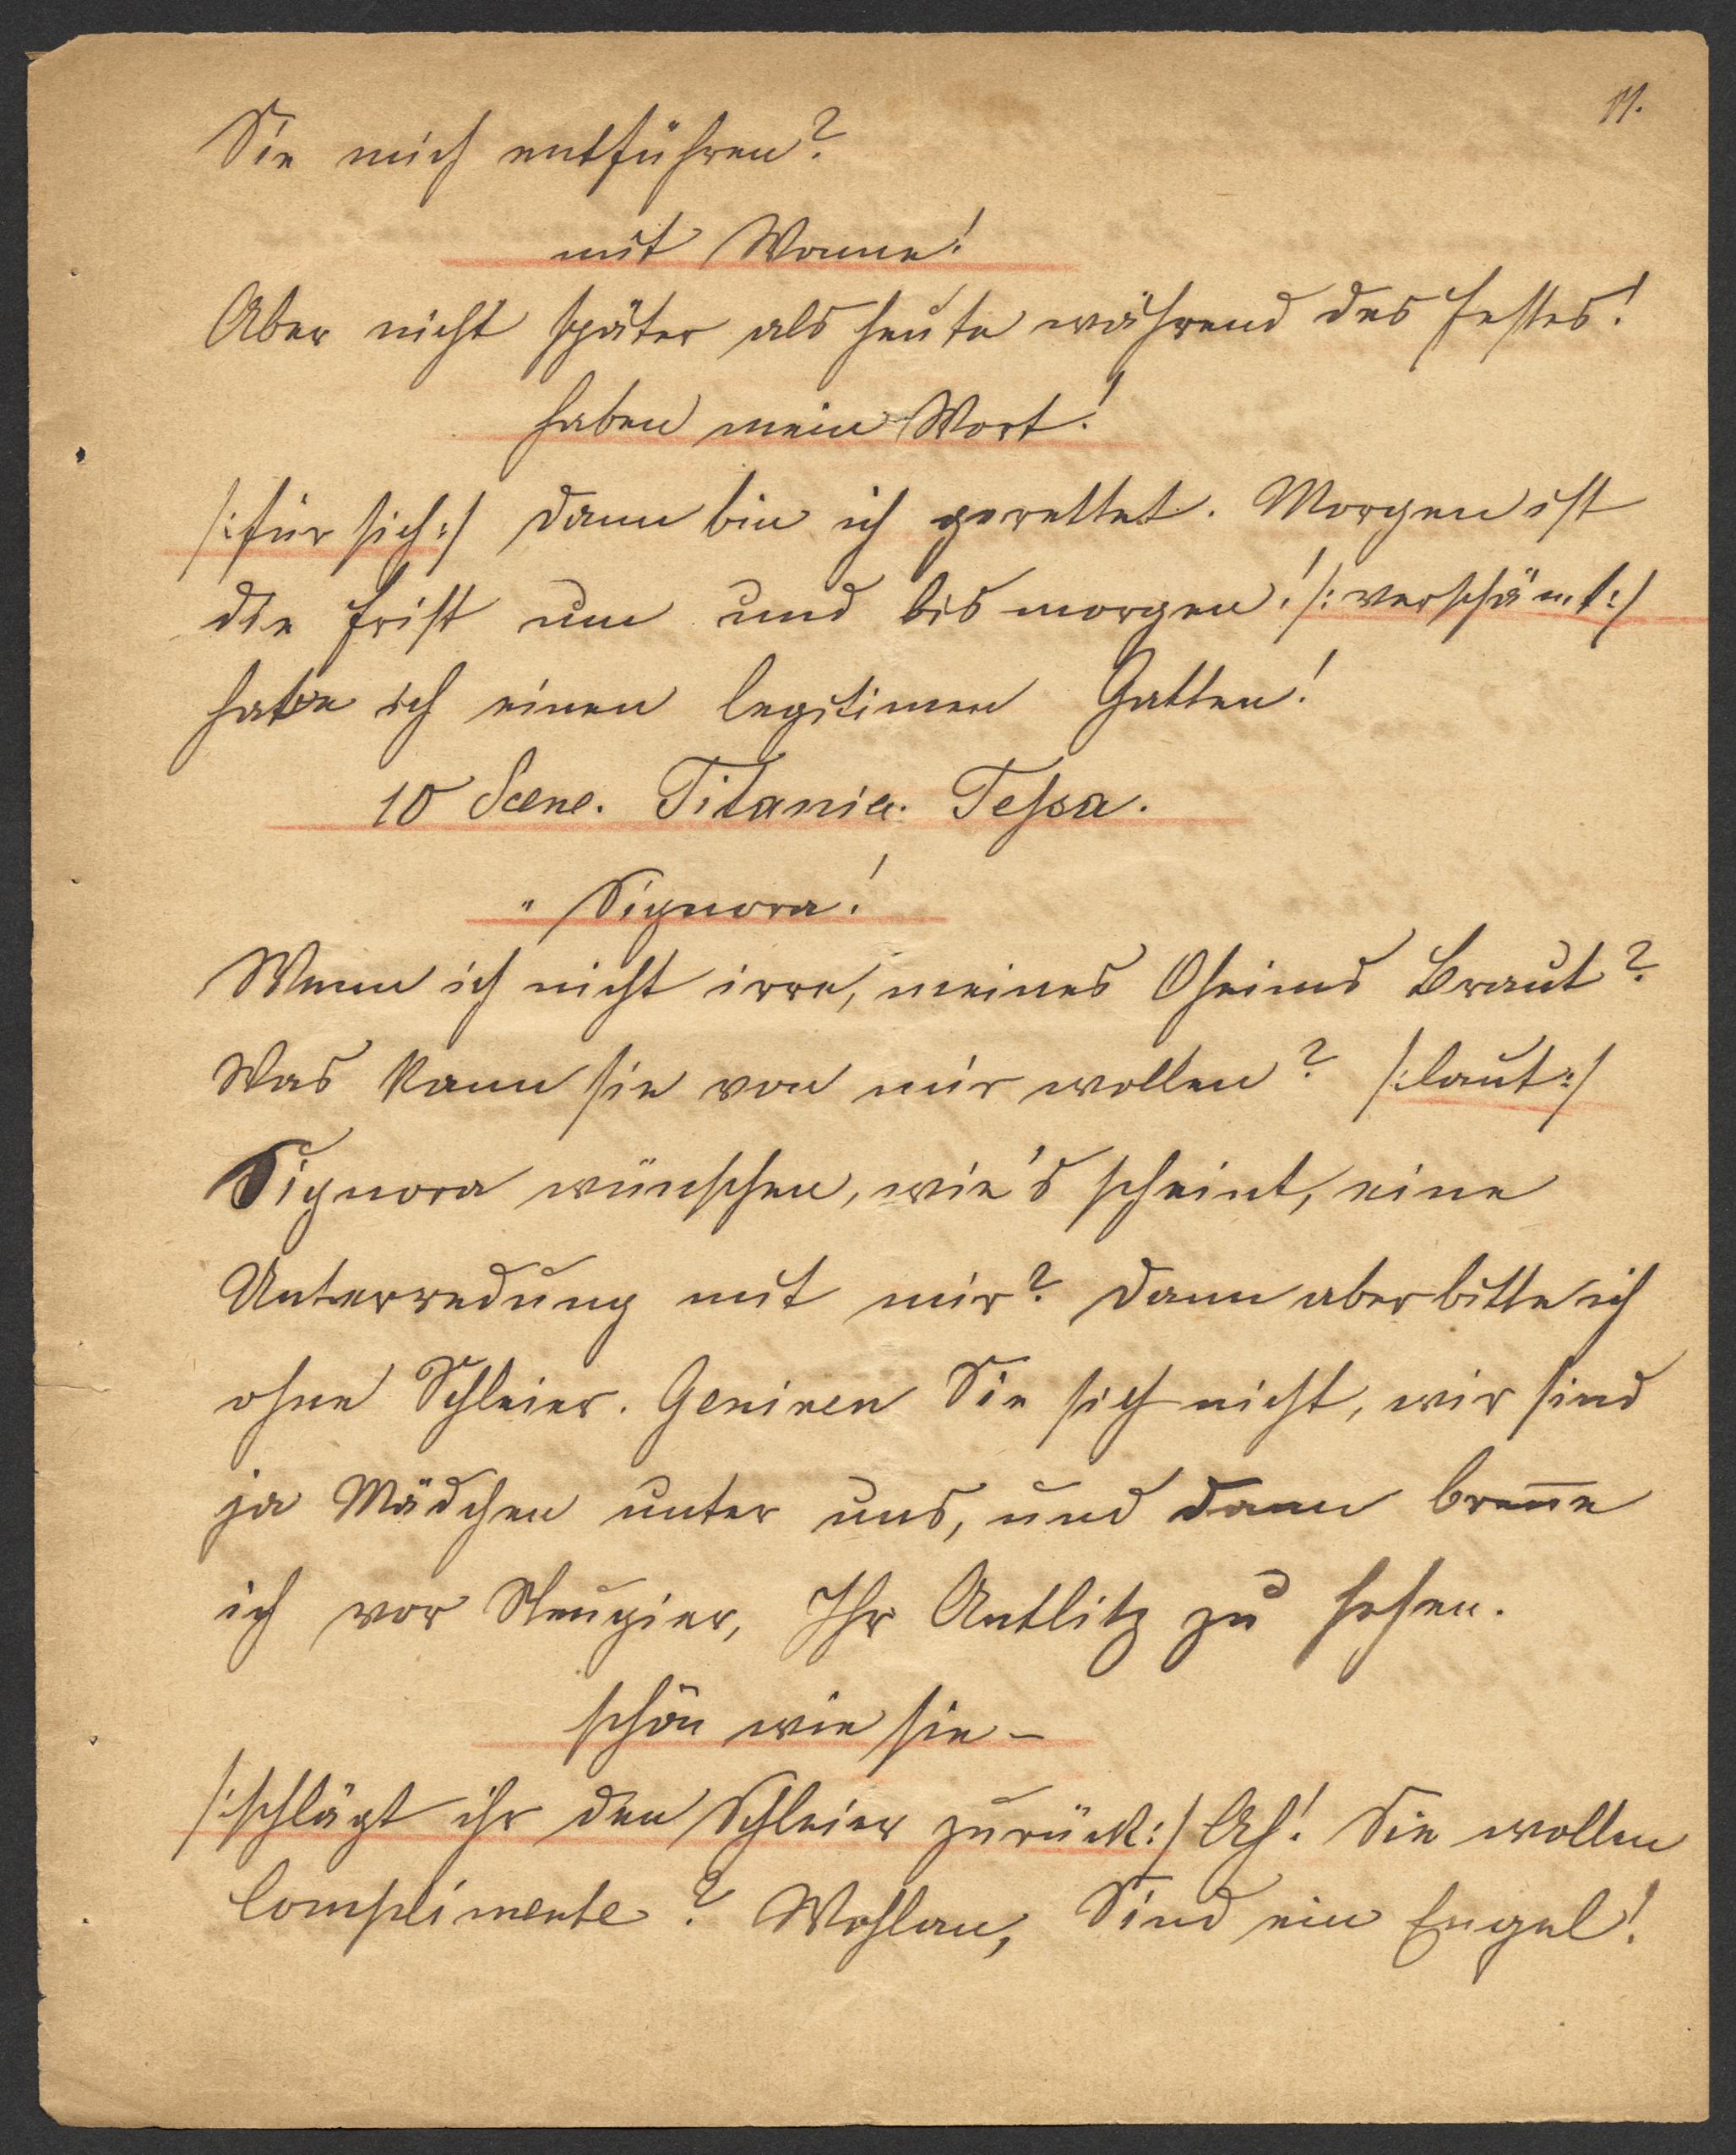 11.
Sie mich entführen?
mit Wonne!
Aber nicht später als heute während des Festes!
haben mein Wort!
/:für sich:/ dann bin ich gerettet. Morgen ist
die Frist um und bis morgen! /:verschämt:/
habe ich einen legitimen Gatten!
10 Scene. Titania. Tessa.
" Signora!
Wenn ich nicht irre, meines Oheims Braut?
Was kann sie von mir wollen? /:laut:/
Signora wünschen, wie's scheint, eine
Unterredung mit mir? dann aber bitte ich
ohne Schleier. Geniren Sie sich nicht, wir sind
ja Mädchen unter uns, und dann breñe
ich vor Neugier, Ihr Antlitz zu sehen.
schön wie sie –
/:schlägt ihr den Schleier zurück:/ Ah! Sie wollen
Complimente? Wohlan, Sind ein Engel!